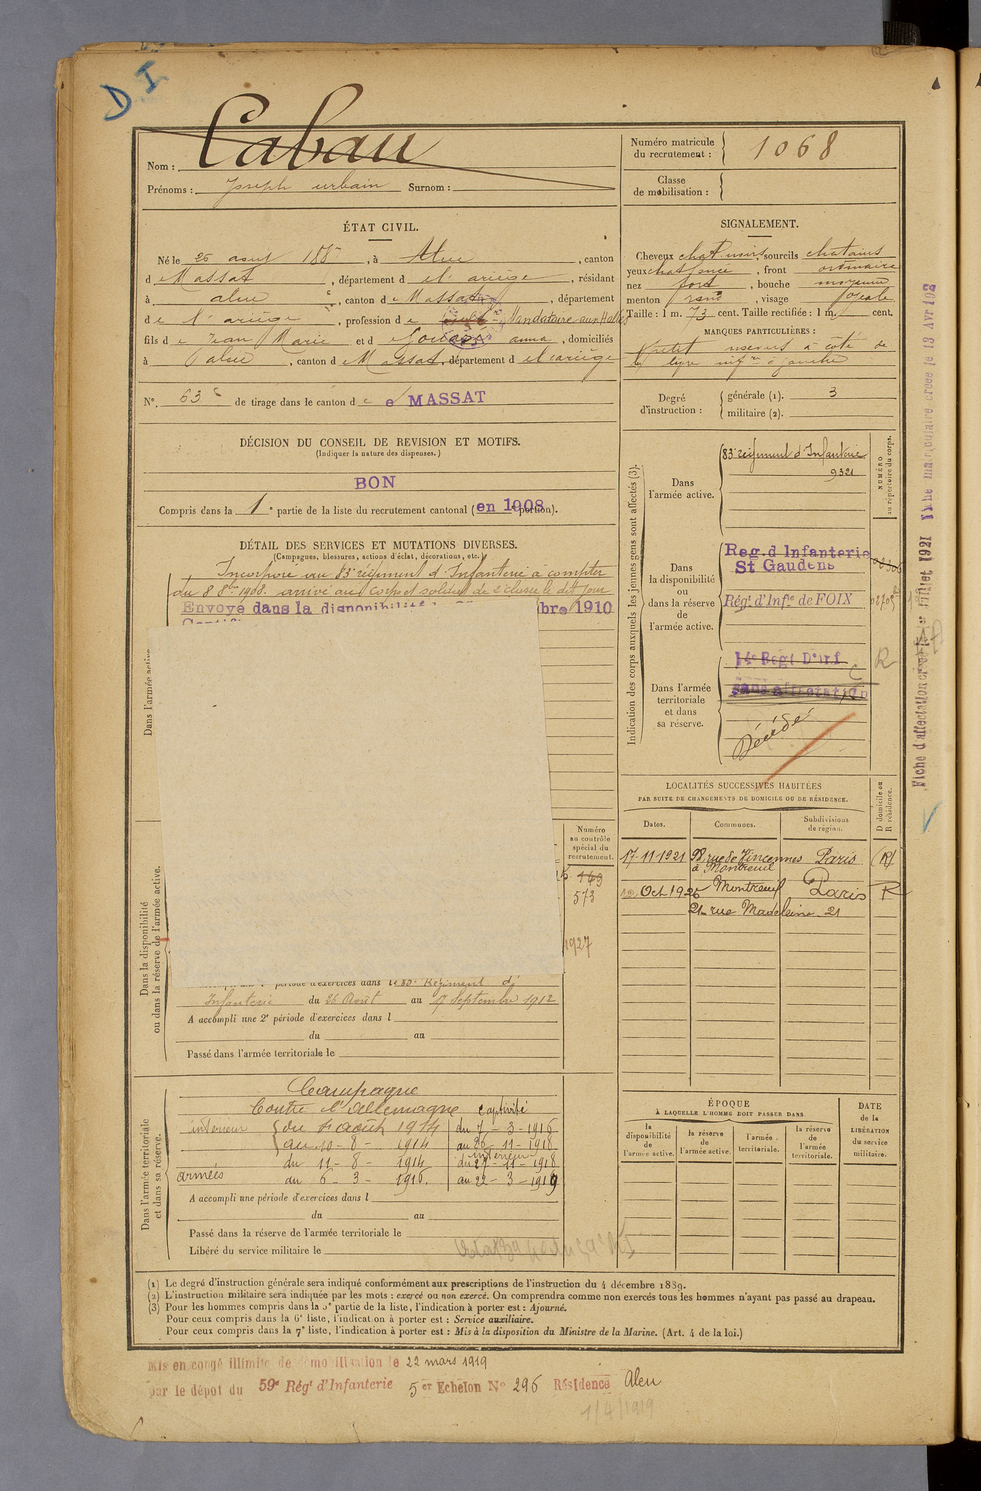 D I
Nom : Cabau
Prénoms : Joseph urbain Surnom :
Numéro matricule du recrutement : 1068
Classe de mobilisation :
ÉTAT CIVIL.
Né le 26 août 188 , à Aleu , canton
d e Massat , département d e l'ariège , résidant
à aleu , canton d e Massat , département
d e l'ariège , profession d e Mandataire aux Halles
fils d e Jean Marie et d anna , domiciliés
à aleu , canton d e Massat , département d e l'ariège
N° 63 de tirage dans le canton d e MASSAT
DÉCISION DU CONSEIL DE REVISION ET MOTIFS.
(Indiquer la nature des dispenses.)
BON
Compris dans la 1e partie de la liste du recrutement cantonal (en 1908 portion).
DÉTAIL DES SERVICES ET MUTATIONS DIVERSES.
(Campagnes, blessures, actions d'éclat, décorations, etc.)
Incorporé au 83e régiment d'Infanterie à compter
du 8 8bre 1908. arrivé au corps et soldat de 2e classe le dit jour
Envoyé dans la disponibilité bre 1910
Dans l'armée active.
SIGNALEMENT.
Cheveux chat noir sourcils chatains
yeux chat foncé , front ordinaire
nez fort , bouche moyenne
menton rond , visage ovale
Taille : 1 m. 73 cent. Taille rectifiée : 1 m. cent.
MARQUES PARTICULIÈRES :
petit à côté de
Degré d'instruction : générale (1). 3
militaire (2).
Indication des corps auxquels les jeunes gens sont affectés (3).
NUMÉRO au répertoire du corps.
Dans l'armée active.
83e régiment d'Infanterie
9321
Dans la disponibilité ou dans la réserve de l'armée active.
Reg. d Infanterie
St Gaudens
Régt d'Infie de FOIX
Dans l'armée territoriale et dans sa réserve.
14e Regt D'inf
R
sans affectation
Décédé
LOCALITÉS SUCCESSIVES HABITÉES
PAR SUITE DE CHANGEMENTS DE DOMICILE OU DE RÉSIDENCE.
D domicile ou R résidence.
Dates. Communes. Subdivisions de région.
17-11-1921 98 rue de Vincennes Paris (R)
à Montreuil
12 Oct 1926 Montreuil Paris R
21 rue Madeleine 21
Numéro au contrôle spécial du recrutement.
149
573
1927
Dans la disponibilité ou dans la réserve de l'armée active.
période d'exercices dans Régiment d'
Infanterie du 26 Août au 17 Septembre 1912
A accompli une 2e période d'exercices dans l
du au
Passé dans l'armée territoriale le
Dans l'armée territoriale et dans sa réserve.
Campagne
Contre l'Allemagne captivité
intérieur du 4 août 1914 du 7 - 3 - 1916
au 10 - 8 - 1914 au 26 - 11 - 1918
intérieur
armées du 11 - 8 - 1914 du 27 - 11 - 1918
au 6 - 3 - 1916. au 22 - 3 - 1919
A accompli une période d'exercices dans l
du au
Passé dans la réserve de l'armée territoriale le
Libéré du service militaire le
ÉPOQUE
À LAQUELLE L'HOMME DOIT PASSER DANS
la disponibilité de l'armée active.
la réserve de l'armée active.
l'armée territoriale.
la réserve de l'armée territoriale.
DATE de la LIBÉRATION du service militaire.
(1) Le degré d'instruction générale sera indiqué conformément aux prescriptions de l'instruction du 4 décembre 1889.
(2) L'instruction militaire sera indiquée par les mots : exercé ou non exercé. On comprendra comme non exercés tous les hommes n'ayant pas passé au drapeau.
(3) Pour les hommes compris dans la 5e partie de la liste, l'indication à porter est : Ajourné.
Pour ceux compris dans la 6e liste, l'indication à porter est : Service auxiliaire.
Pour ceux compris dans la 7e liste, l'indication à porter est : Mis à la disposition du Ministre de la Marine. (Art. 4 de la loi.)
Mis en congé illimité de démobilisation le 22 mars 1919
par le dépot du 59e Régt d'Infanterie 5er Echelon No 296 Résidence Aleu
1/4/1919
Fiche d'affectation créée le Juillet 1921 Fiche matriculaire créée le 13 Avr 192